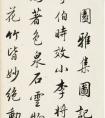 園雅集圖記
李伯時效小李將
為著色泉石雲物
花竹皆妙絕動